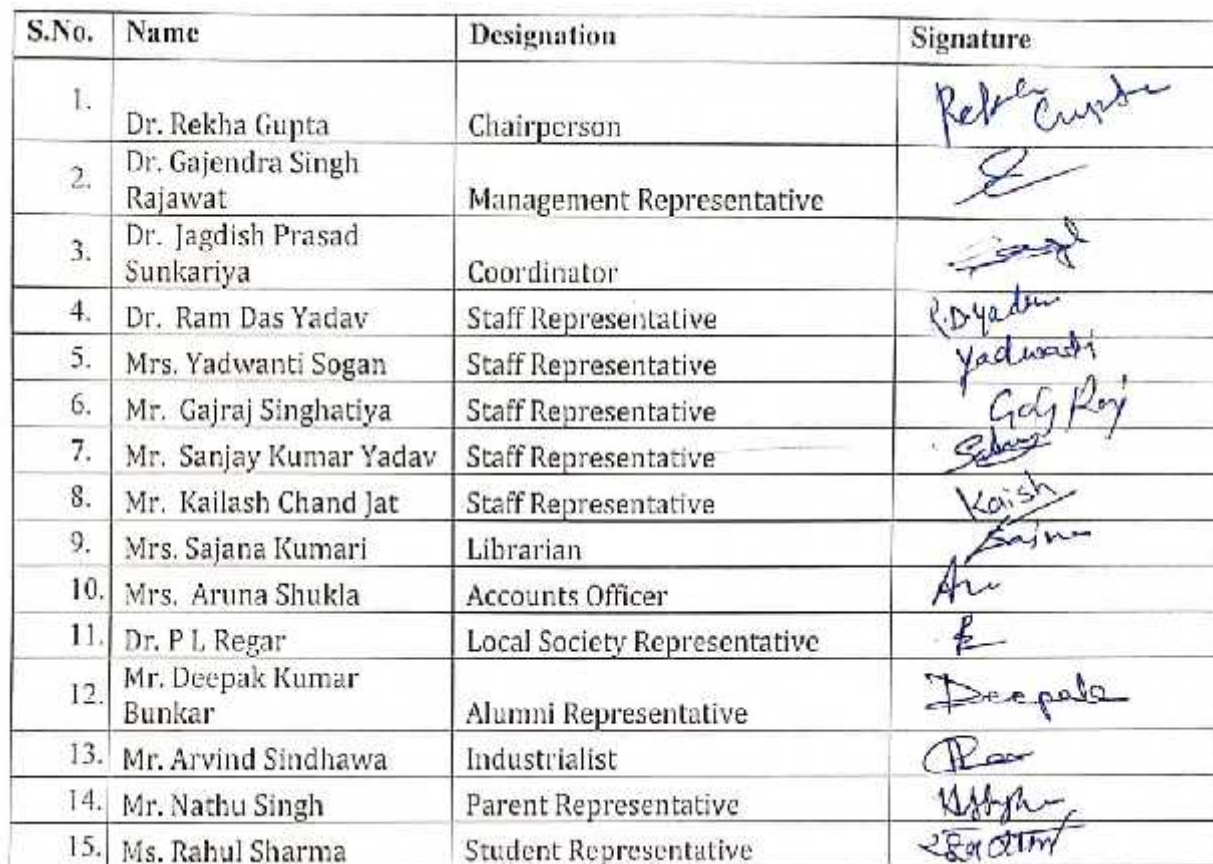 S.No. Name Designation Signature
1. Dr. Rekha Gupta Chairperson Rekha Gupta
2. Dr. Gajendra Singh
Rajawat Management Representative
3. Dr. Jagdish Prasad
Sunkariya Coordinator
4. Dr. Ram Das Yadav Staff Representative R.D Yadav
5. Mrs. Yadwanti Sogan Staff Representative Yadwanti
6. Mr. Gajraj Singhatiya Staff Representative
7. Mr. Sanjay Kumar Yadav Staff Representative
8. Mr. Kailash Chand Jat Staff Representative Kaish
9. Mrs. Sajana Kumari Librarian
10. Mrs. Aruna Shukla Accounts Officer
11. Dr. P L Regar Local Society Representative
12. Mr. Deepak Kumar
Bunkar Alumni Representative Deepak
13. Mr. Arvind Sindhawa Industrialist
14. Mr. Nathu Singh Parent Representative
15. Ms. Rahul Sharma Student Representative